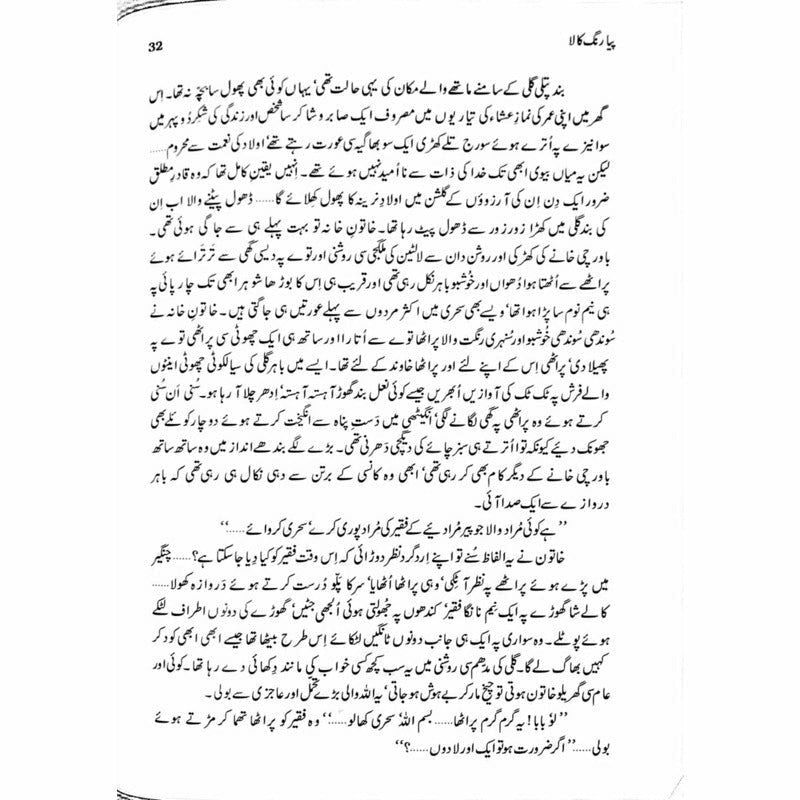 پیا رنگ کالا
32
بند پتلی گلی کے سامنے ماتھے والے مکان کی یہی حالت تھی‘ یہاں کوئی بھی پھول سا بچّہ نہ تھا۔ اِس
گھر میں اپنی عمر کی نمازِ عشاء کی تیاریوں میں مصروف ایک صابر و شاکر سا شخص اور زندگی کی شِکر دُوپہر میں
سوا نیزے پہ اُترے ہوئے سورج تلے کھڑی ایک سوبھاگیہ سی عورت رہتے تھے‘ اولاد کی نعمت سے محروم......
لیکن یہ میاں بیوی ابھی تک خدا کی ذات سے نا اُمید نہیں ہوئے تھے۔ اِنہیں یقینِ کامل تھا کہ وہ قادرِ مطلق
ضرور ایک دِن اِن کی آرزوؤں کے گلشن میں اولادِ نرینہ کا پھول کھلائے گا...... ڈھول پیٹنے والا اب اِن
کی بند گلی میں کھڑا زور زور سے ڈھول پیٹ رہا تھا۔ خاتونِ خانہ تو بہت پہلے ہی سے جاگی ہوئی تھی۔
باورچی خانے کی کھڑکی اور روشن دان سے لالٹین کی ملگجی سی روشنی اور توے پہ دیسی گھی سے تَرتَرائے ہوئے
پراٹھے سے اُٹھتا ہوا دُھواں اور خُوشبو باہر نکل رہی تھی اور قریب ہی اِس کا بوڑھا شوہر ابھی تک چارپائی پہ
ہی نیم نوم سا پڑا ہوا تھا‘ ویسے بھی سحری میں اکثر مردوں سے پہلے عورتیں ہی جاگتی ہیں۔ خاتونِ خانہ نے
سُوندھی سُوندھی خُوشبو اور سُنہری رنگت والا پراٹھا توے سے اُتارا اور ساتھ ہی ایک چھوٹی سی پراٹھی توے پہ
پھیلا دی‘ پراٹھی اِس کے اپنے لئے اور پراٹھا خاوند کے لئے تھا۔ ایسے میں باہر گلی کی سیالکوٹی چھوٹی اینٹوں
والے فرش پہ ٹک ٹک کی آوازیں اُبھریں جیسے کوئی نعل بند گھوڑ آہستہ آہستہ‘ اِدھر چلا آ رہا ہو۔ سُنی اَن سُنی
کرتے ہوئے وہ پراٹھی پہ گھی لگانے لگی‘ انگیٹھی میں دستِ پناہ سے انگیخت کرتے ہوئے دو چار کوئلے بھی
جھونک دیئے کیونکہ توا اُترتے ہی سبز چائے کی دیگچی دَھرنی تھی۔ بڑے لگے بندھے انداز میں وہ ساتھ ساتھ
باورچی خانے کے دیگر کام بھی کر رہی تھی‘ ابھی وہ کانسی کے برتن سے دہی نکال ہی رہی تھی کہ باہر
دروازے سے ایک صدا آئی۔
’’ہے کوئی مُراد والا جو پیر مُرادیئے کے فقیر کی مُراد پوری کرے‘ سحری کروائے......‘‘
خاتون نے یہ الفاظ سُنے تو اپنے اِردگرد نظر دوڑائی کہ اِس وقت فقیر کو کیا دِیا جا سکتا ہے؟...... چنگیر
میں پڑے ہوئے پراٹھے پہ نظر آ ٹِکی‘ وہی پراٹھا اُٹھایا‘ سر کا پلّو دُرست کرتے ہوئے دَروازہ کھولا......
کالے شا گھوڑے پہ ایک نیم نانگا فقیر‘ کندھوں پہ جُھولتی ہوئی اُلجھی جَٹیں‘ گھوڑے کی دونوں اطراف لٹکے
ہوئے پوٹلے۔ وہ سواری پہ ایک ہی جانب دونوں ٹانگیں لٹکائے اِس طرح بیٹھا تھا جیسے ابھی ابھی کود کر
کہیں بھاگ لے گا۔ گلی کی مدھم سی روشنی میں یہ سب کچھ کسی خواب کی مانند دِکھائی دے رہا تھا۔ کوئی اور
عام سی گھریلو خاتون ہوتی تو چیخ مار کر بے ہوش ہو جاتی‘ یہ اللہ والی بڑے تحمّل اور عاجزی سے بولی۔
’’لَو بابا! یہ گرم گرم پراٹھا...... بسم اللہ‘ سحری کھالو......‘‘ وہ فقیر کو پراٹھا تھما کر مڑتے ہوئے
بولی......’’ اگر ضرورت ہو تو ایک اور لا دوں......؟‘‘